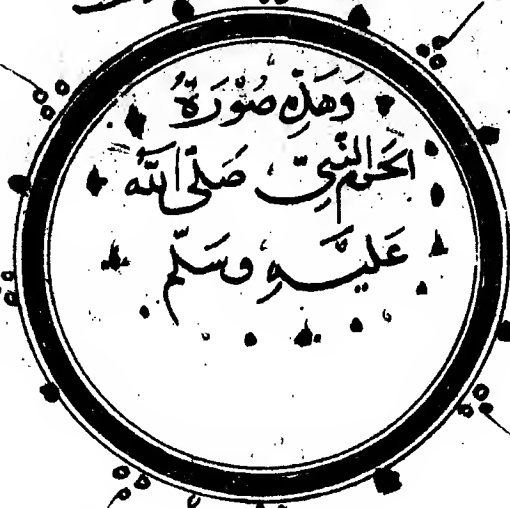 وَهَذِهِ صُوْرَةُ
الحَرَم النَّبِىِّ صَلَّى اللَّه
عَلَيْهِ وَسَلَّم